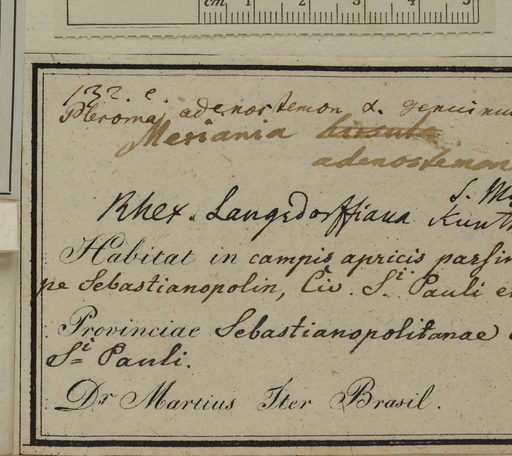 cm 1 2 3 4 5
132. c.
Pleroma adenostemon α. genuinu
Meriania hirsuta
adenostemon
S. M
Rhex. Langsdorffiana Kunth
Habitat in campis apricis passim
pe Sebastianopolin, Civ. S.i Pauli e
Provinciae Sebastianopolitanae
S.i Pauli.
Dr Martius Iter Brasil.